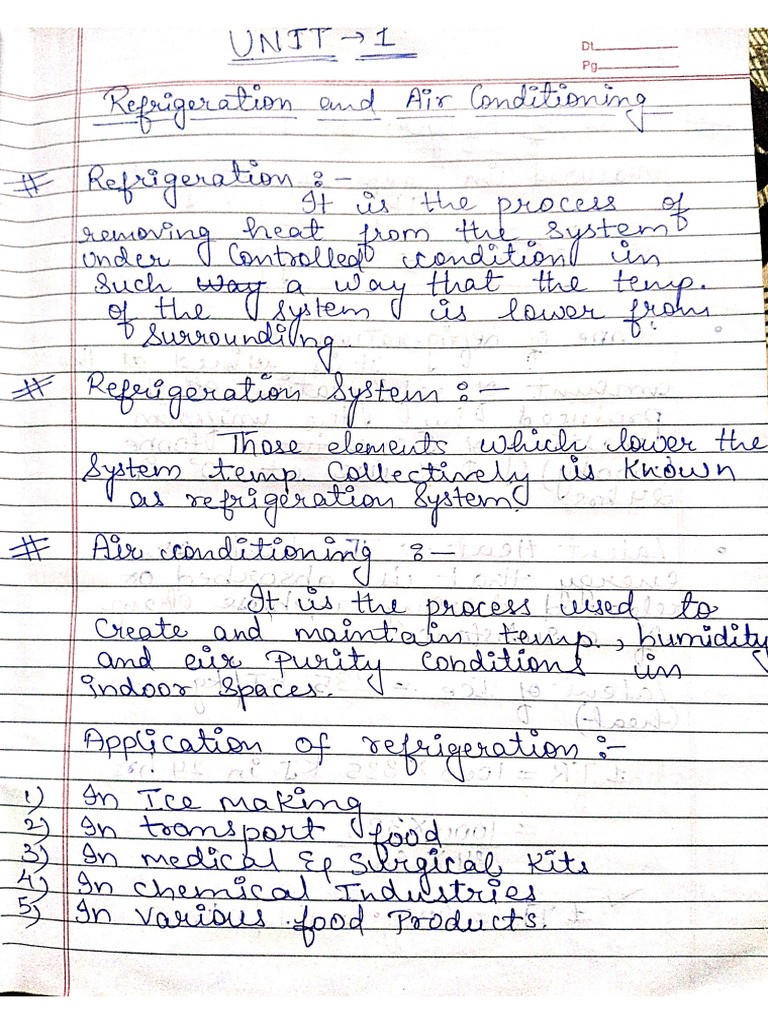 UNIT → 1
Dt.
Pg.
Refrigeration and Air Conditioning
# Refrigeration :-
It is the process of
removing heat from the system
under controlled condition in
such way a way that the temp.
of the system is lower from
surrounding
# Refrigeration System :-
Those elements which lower the
System temp. collectively is known
as refrigeration system.
# Air conditioning :-
It is the process used to
create and maintain temp., humidity
and air purity conditions in
indoor spaces.
Application of refrigeration :-
1) In Ice making
2) In transport food
3) In medical & Surgical kits
4) In chemical Industries
5) In various food Products.